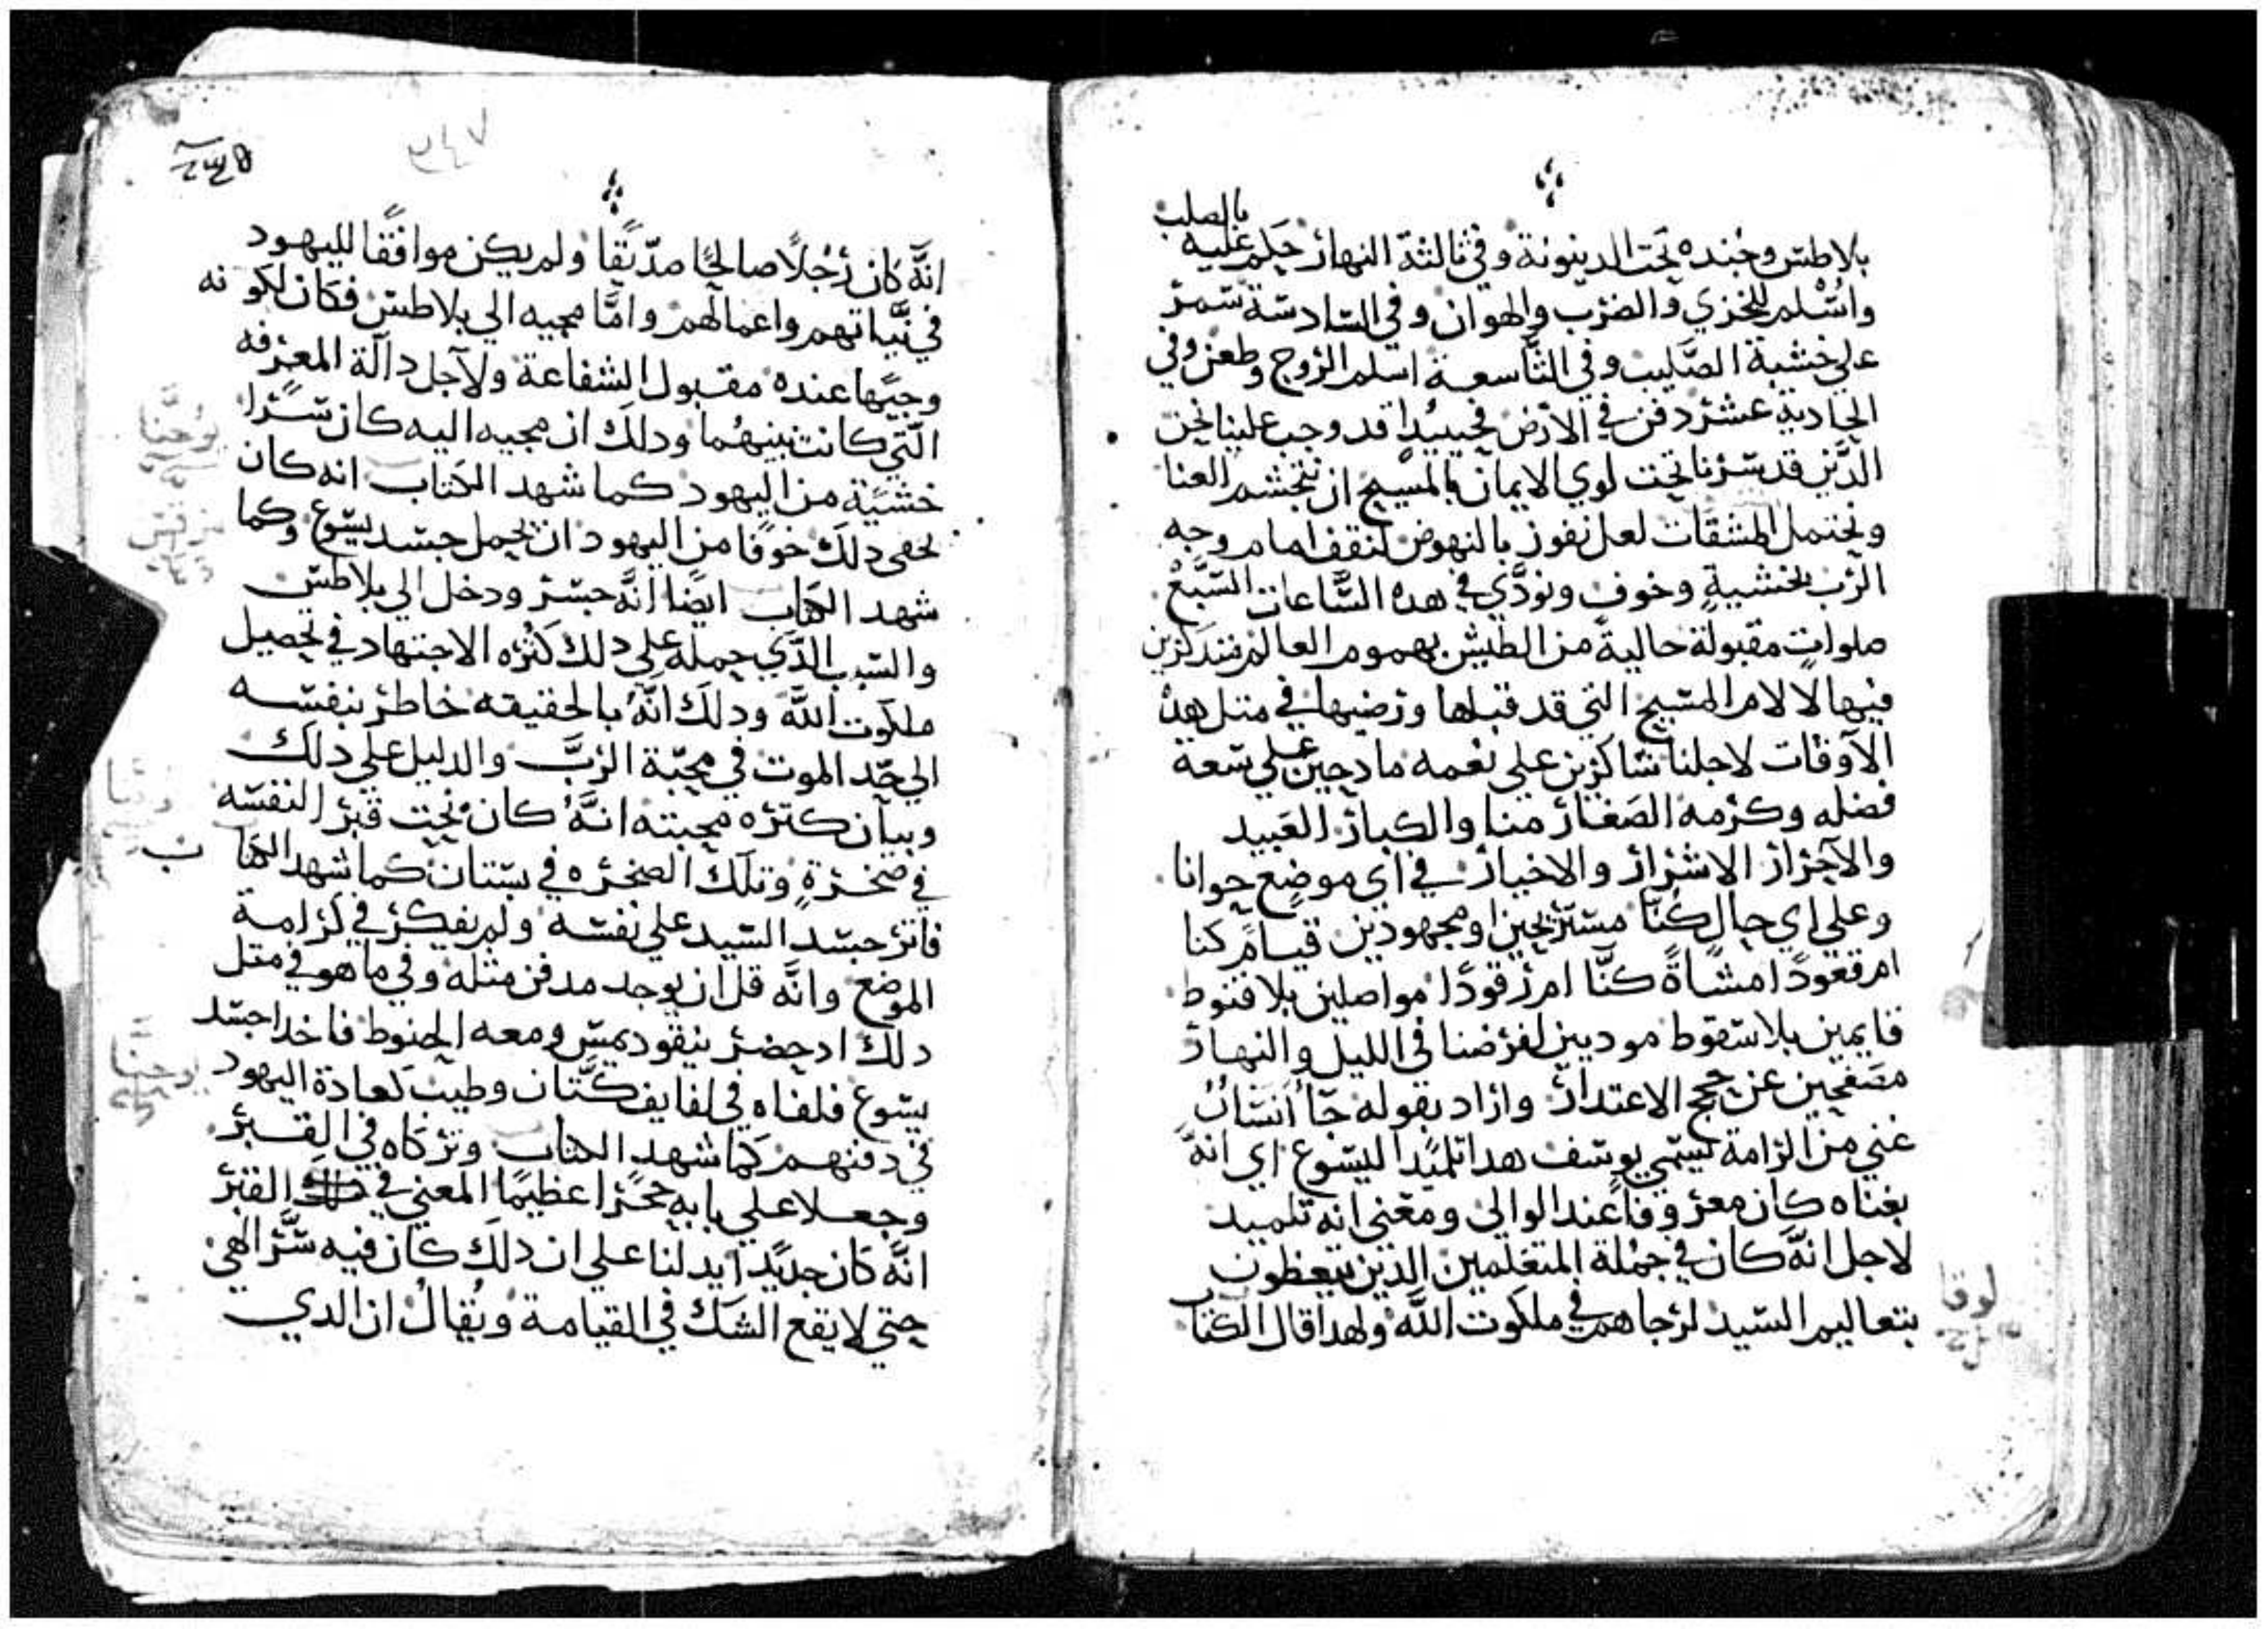 بالصلب
بلاطس وجنده تحت الدينونة وفي ثالثة النهار حكم عليه
واسلم للخزي والضرب والهوان وفي السادسة سمر
علي خشبة الصليب وفي التاسعة اسلم الروح وطعن وفي
الحادية عشر دفن في الارض فحينيدا قد وجب علينا نحن
الدين قد سرنا تحت لوي الايمان بالمسيح ان نتجشم العنا
ونحتمل المشقات لعل نفوز بالنهوض لنقف امام وجه
الرب بخشيةٍ وخوف ونودّي في هده السَّاعات السَّبَعْ
صلواتٍ مقبولة خاليةً من الطيش بهموم العالم متدكرين
فيها لالام المسيح التي قد قبلها ورضيها في متل هده
الاوقات لاجلنا شاكرين علي نعمه مادحين علي سعة
فضله وكرمه الصغار منا والكبار العبيد
والاحرار الاشرار والاخيار في اي موضع حوانا
وعلي اي حال كنّا مستريحين او مجهودين قيامً كنا
ام قعودًا مشاةً كنَّا ام رقودًا مواصلين بلا قنوط
قايمين بلا سقوط موديين لفرضنا في الليل والنهار
مصفحين عن حجج الاعتدار واراد بقوله جا انسان
غني من الرامة يسمي يوسف هدا تلميدًا ليسوع اي انهّ
بغناه كان معروفاً عند الوالي ومعني انه تلميد
لاجل انَّه كان في جملة المتعلمين الدين يتعظون
بتعاليم السيد لرجاهم في ملكوت اللّه ولهدا قال الكتاب
لوقا
٢٤٧
انَّه كان رجُلاً صالحًا صدّيقًا ولم يكن موافقًا لليهود
في نيَّاتهم واعمالهم وامَّا مجيه الي بلاطس فكان لكونه
وجيًها عنده مقبول الشفاعة ولاجل دالة المعرفه
الّتي كانت بينهُما ودلك ان مجيه اليه كان سّرا
خشيَة من اليهود كما شهد الكتاب انه كان
يخفي دلك خوفًا من اليهود ان يحمل جسد يسوع وكما
شهد الكتاب ايضًا انَّه جسر ودخل الي بلاطس
والسبب الدّي حمله علي دلك كثره الاجتهاد في تحصيل
ملكوت اللَّه ودلك انَّهُ بالحقيقه خاطر بنفسه
الي حّد الموت في محبّة الربَّ والدليل علي دلك
وبيان كتره محبته انَّهُ كان نحت قبر لنفسه
في صخرةٍ وتلك الصخره في بستان كما شهد الكتاب
فاتر جسد السيد علي نفسه ولم يفكر في كرامة
الموضع وانَّه قل ان يوجد مدفن متله وفي ما هو في متل
دلك اد حضر نيقوديمس ومعه الحنوط فاخدا جسد
يسوع فلفاه في لفايف كتَّان وطيب كعادة اليهود
في دفنهم كما شهد الكتاب وتركاه في القبر
وجعلا علي بابه حجرًا عظيمًا المعني في القبر
انَّه كان جديّدًا يدلنا علي ان دلك كان فيه سّر الهي
حتي لا يقع الشك في القيامة ويُقالُ ان الدي
يوحنَّا
مرقس
يوحنَّا